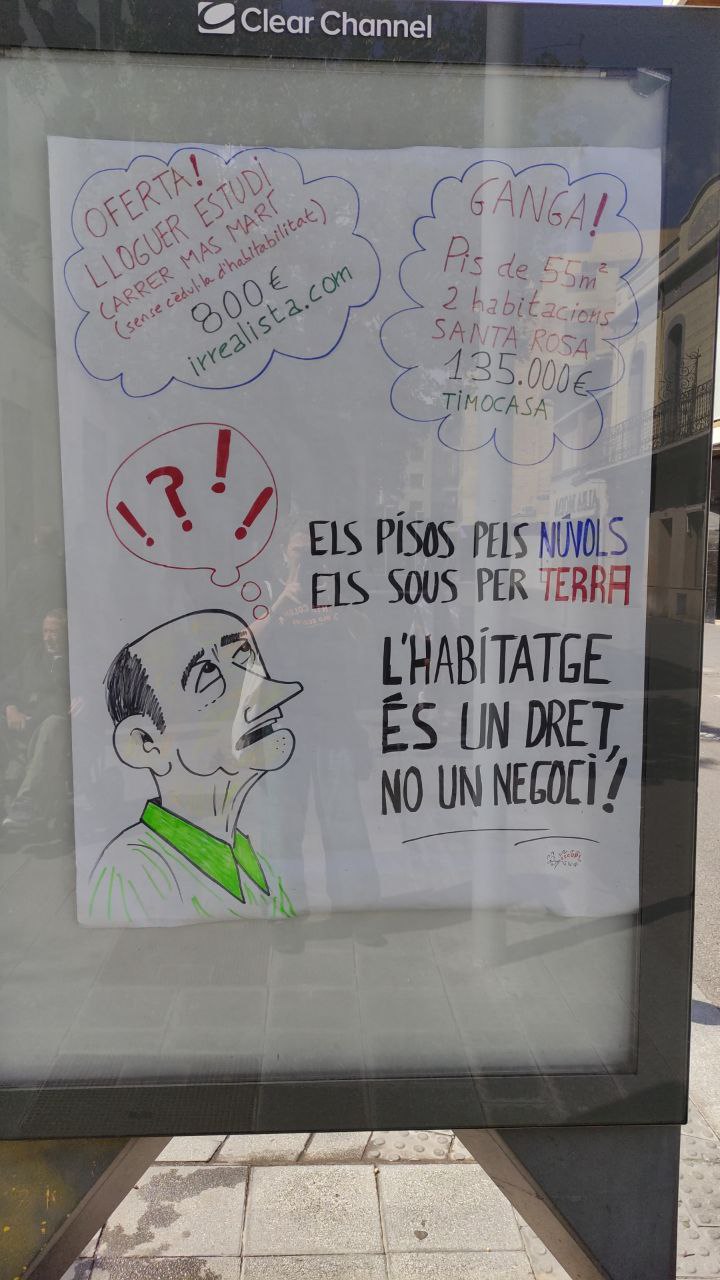 Clear Channel
OFERTA!
LLOGUER ESTUDI
CARRER MAS MARÍ
(sense cèdul·la d'habitabilitat)
800€
irrealista.com
GANGA!
Pis de 55m²
2 habitacions
SANTA ROSA
135.000€
TIMOCASA
!?!!
ELS PISOS PELS NÚVOLS
ELS SOUS PER TERRA
L'HABITATGE
ÉS UN DRET,
NO UN NEGOCI!